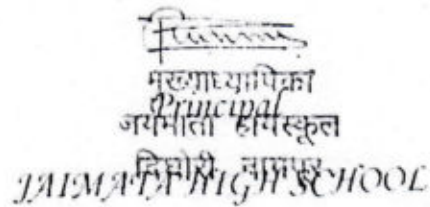 मुख्याध्यापिका
Principal
जयमाता हायस्कूल
दिघोरी नागपूर
JAIMATA HIGH SCHOOL